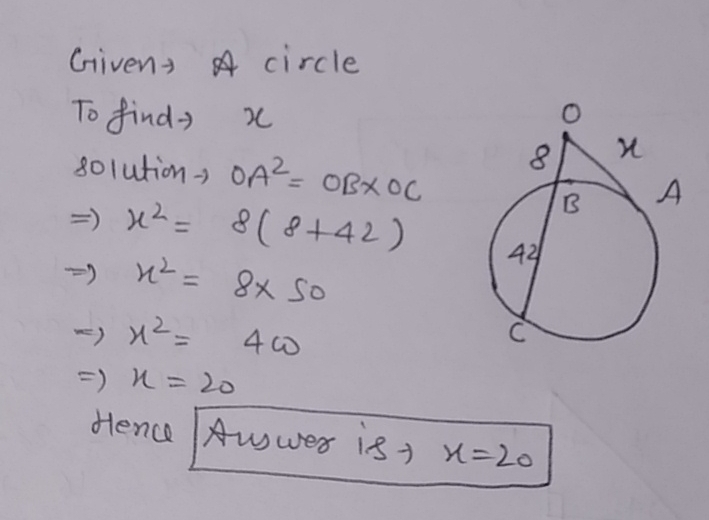 Given → A circle
To find → x
solution → OA² = OB×OC
⇒ x² = 8(8+42)
⇒ x² = 8×50
⇒ x² = 400
⇒ x = 20
Hence Answer is → x=20
O
8
x
B
A
42
C